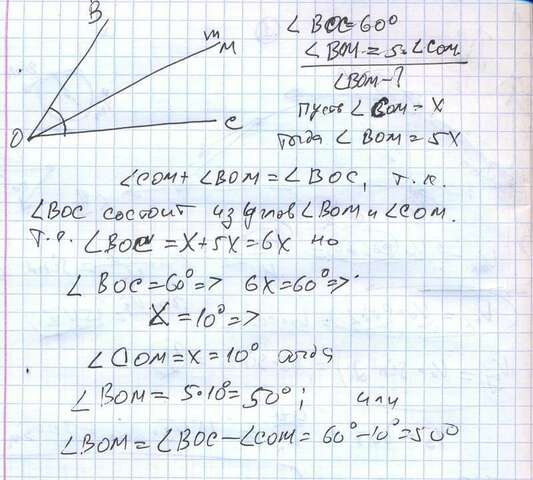 B
m
M
O
C
∠BOC=60°
∠BOM=5·∠COM.
∠BOM-?
Пусть ∠COM=X
тогда ∠BOM=5X
∠COM+∠BOM=∠BOC, т.к.
∠BOC состоит из углов ∠BOM и ∠COM.
т.е. ∠BOC=X+5X=6X но
∠BOC=60°=> 6X=60°=>
X=10°=>
∠COM=X=10° тогда
∠BOM=5·10°=50°; или
∠BOM=∠BOC-∠COM=60°-10°=50°